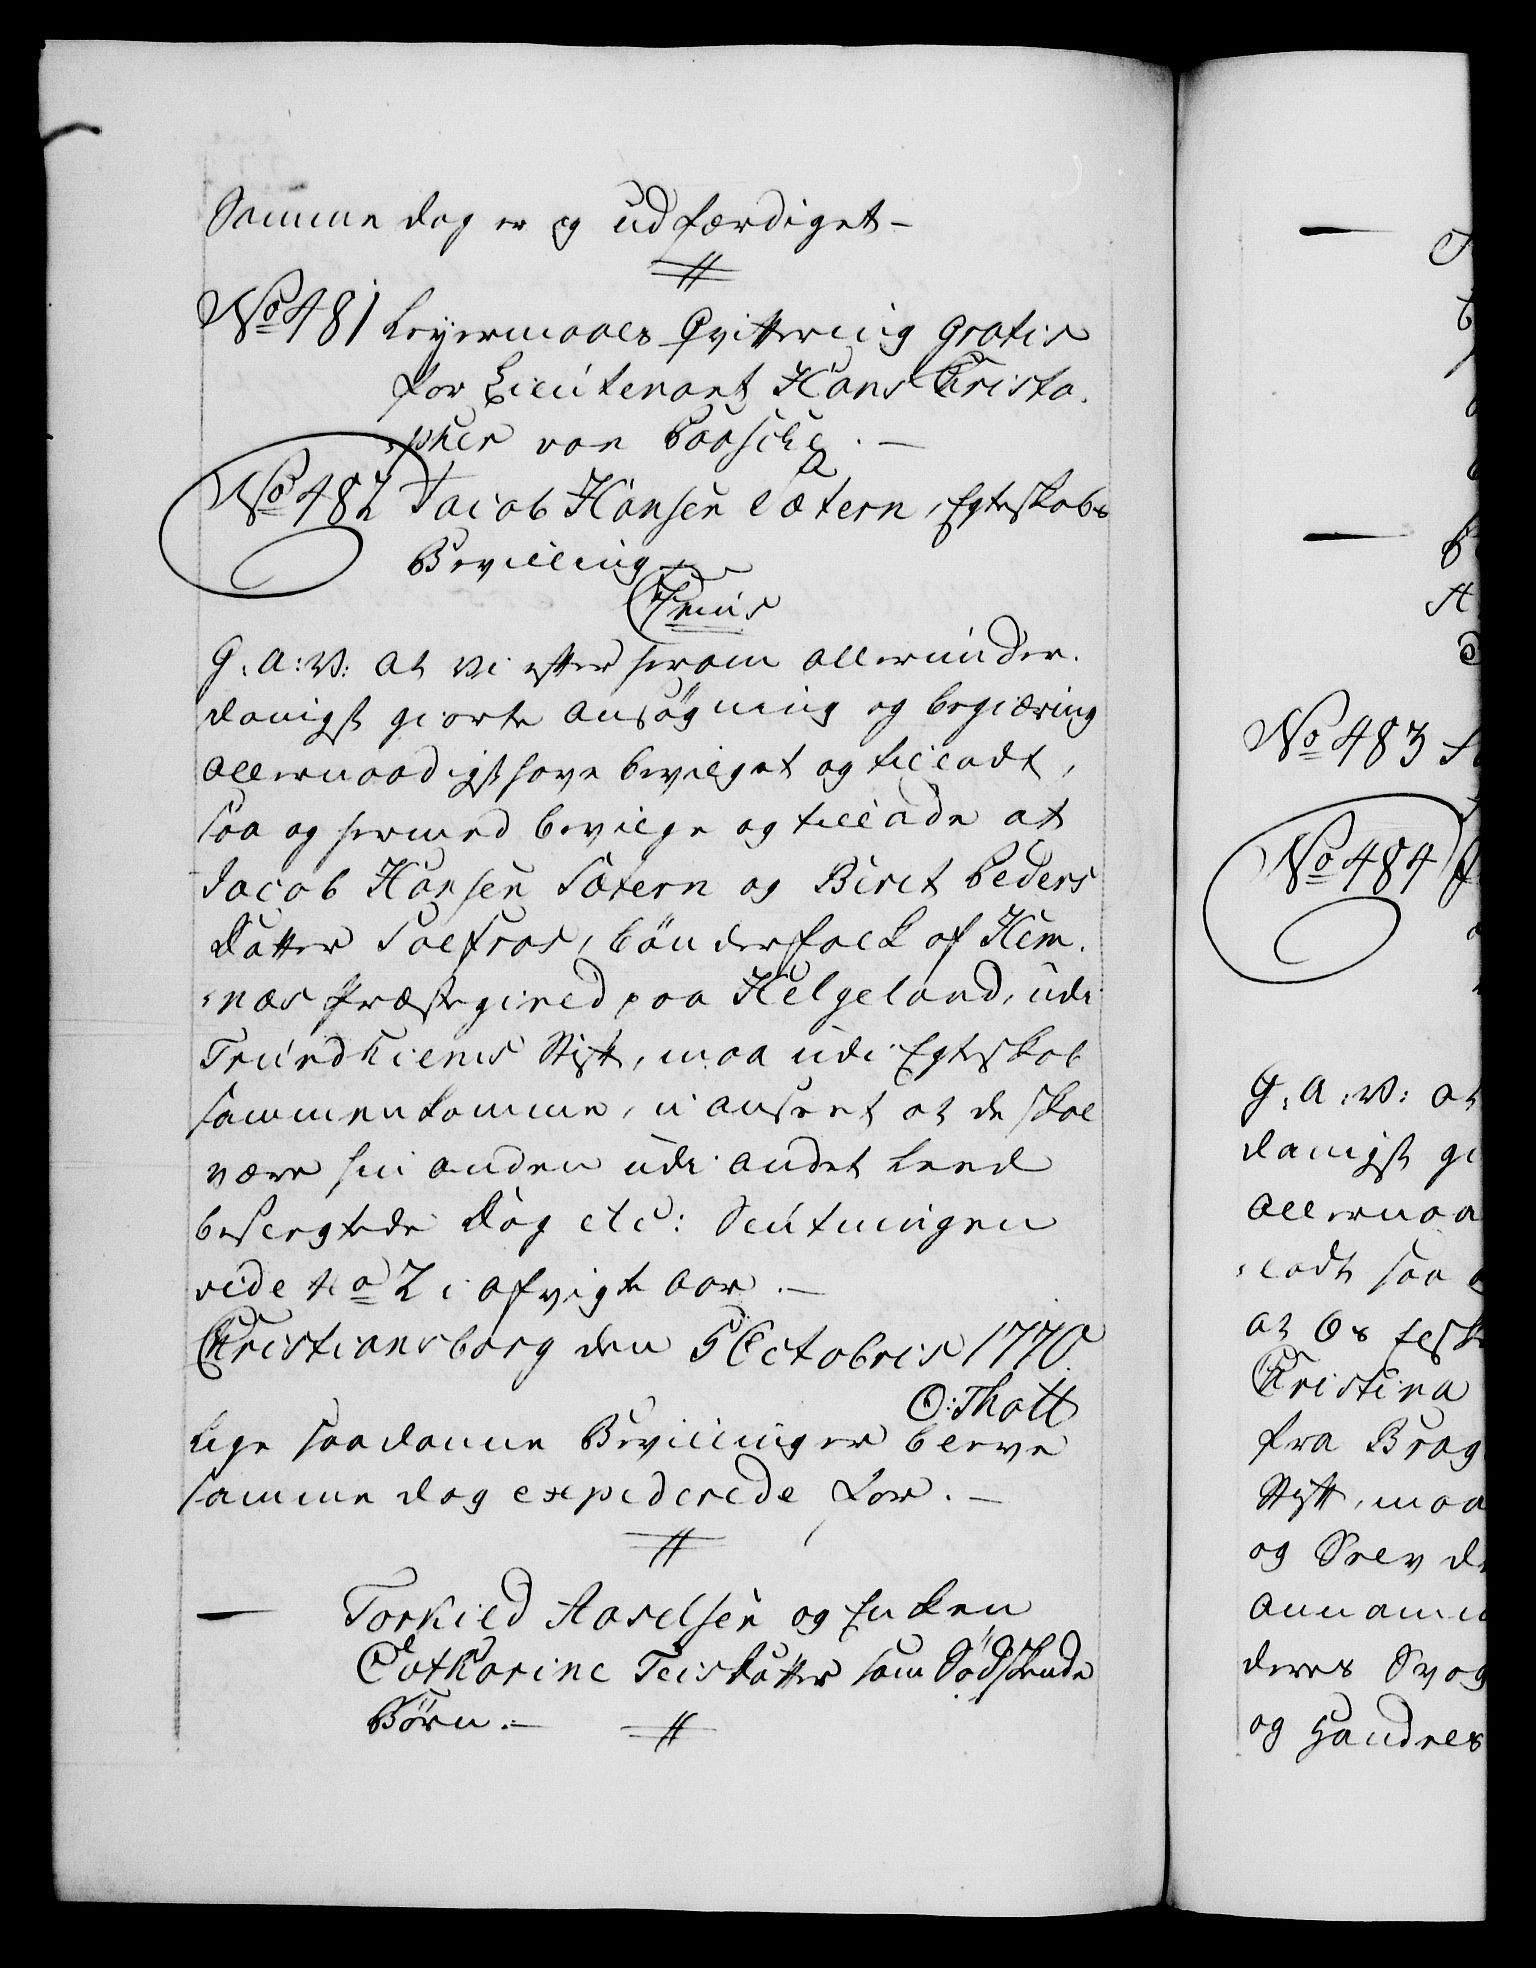 Samme dag er og udfærdiget –
No 481 Leyermaals Qvittering gratis
for Lieutenant Hans Christo-
pher von Paasche. –
No 482 Jacob Hansen Sætern, Egteskabs
Bevilling.
Fr..us
G: A: V: at Vi efter herom allerunder-
danigst giorte ansøgning og begiæring
allernaadigst have bevilget og tilladt,
saa og hermed bevilge og tillade at
Jacob Hansen Sætern og Biret Peders
Datter Solfros, bønderfolk af Hem-
næs Præstegield paa Helgeland, udi
Trundhiems Stift, maa udi Egteskab
sammenkomme, uanseet at de skal
være hin anden udi andet Leed
beslegtede Dog etc: Slutningen
vide No 2 i afvigte aar. –
Christiansborg den 5 Octobris 1770.
O: Thott
Lige saadanne Bevillinger bleve
samme dag expederede for. –
Torkild Axselsen og Enken
Catharine Teisdatter som Sødskende
Børn. –
No 483
No 484
G: A: V: at
danigst gi
allernaa
ladt saa
at Os
Christina
fra Brag
Stift, maa
og Selv
deres Svog
og Handres